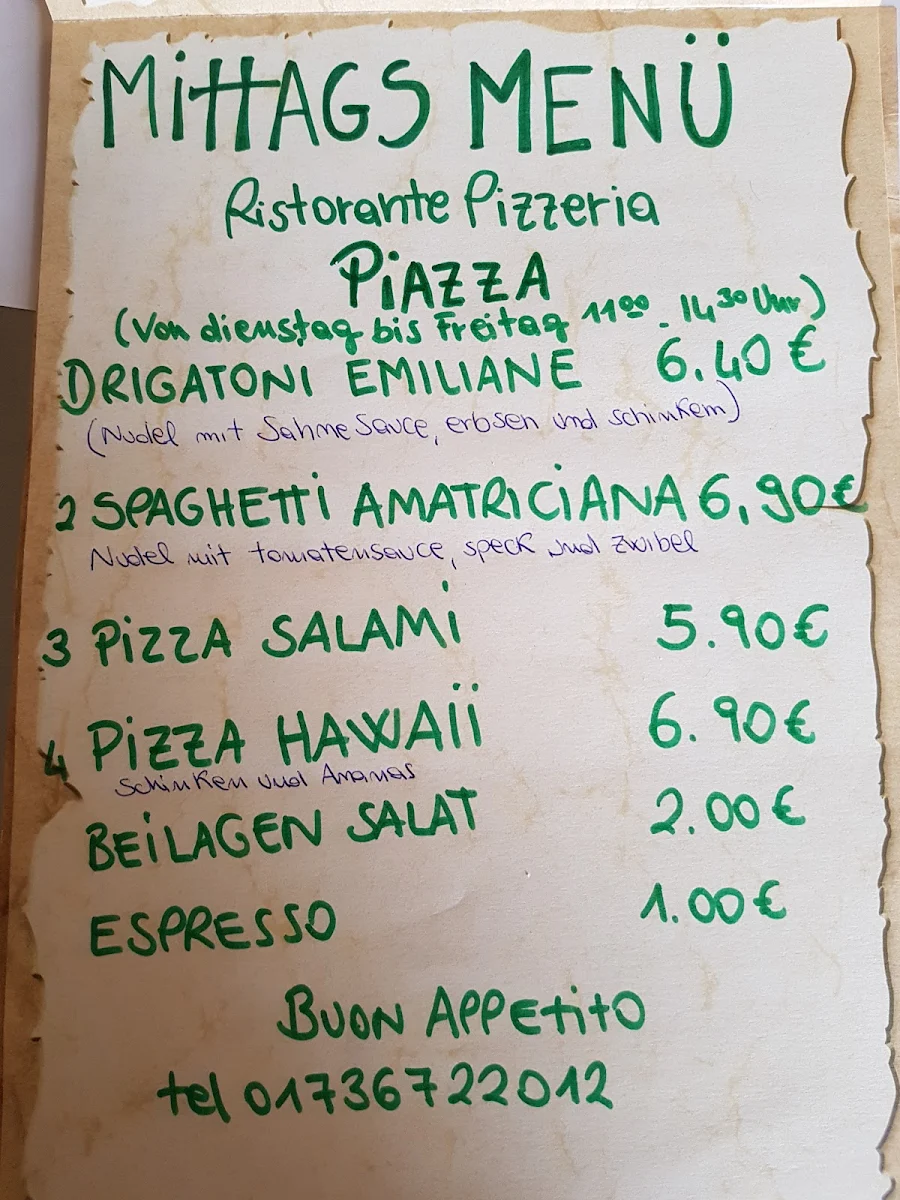 MittAGS MENÜ
Ristorante Pizzeria
PiAZZA
(Von dienstag bis Freitag 11⁰⁰ - 14³⁰ Uhr)
1) RIGATONI EMILIANE 6.40 €
(Nudel mit Sahne Sauce, erbsen und schinkem)
2 SPAGHEtti AMATRiCiANA 6,90€
Nudel mit tomatensauce, speck und zwibel
3 PiZZA SALAMi 5.90€
4 PiZZA HAWAii 6.90€
Schinken und Ananas
BEiLAGEN SALAT 2.00€
ESPRESSO 1.00€
BUON APPEtitO
tel 01736722012